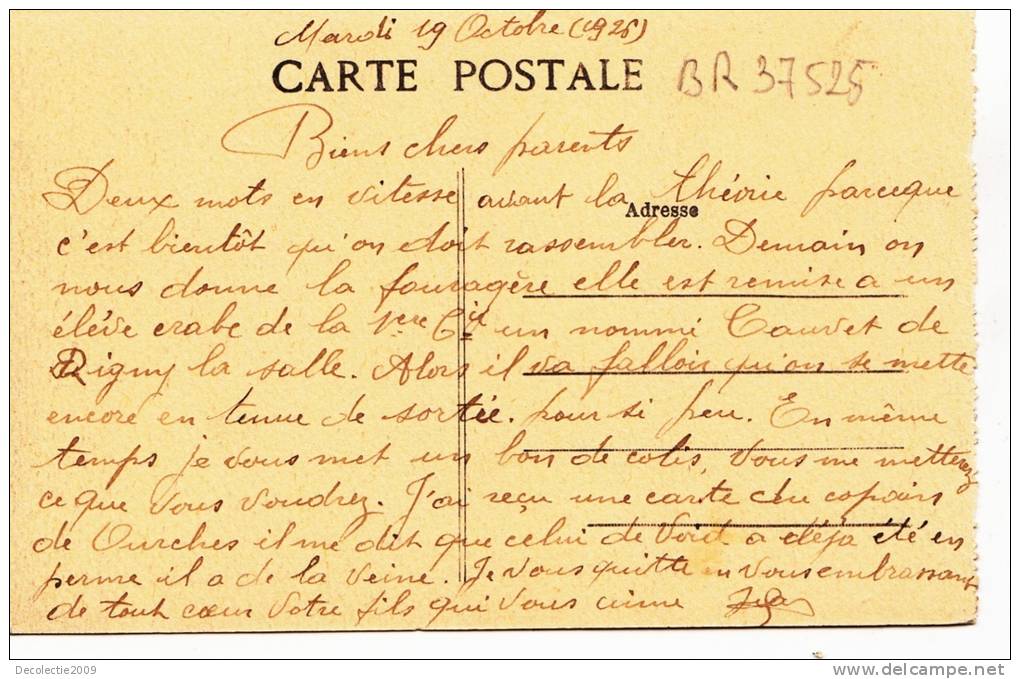 Mardi 19 Octobre (1926)
CARTE POSTALE
BR 37525
Biens chers parents
Deux mots en vitesse avant la théorie parceque
Adresse
c'est bientôt qu'on doit rassembler. Demain on
nous donne la fouragère elle est remise a un
élève crabe de la 1ère Cie un nommé Cauvet de
Rigny la salle. Alors il va falloir qu'on se mette
encore en tenue de sortie. pour si peu. En même
temps je vous met un bon de colis, Vous me metterez
ce que vous voudrez. J'ai reçu une carte du copain
de Ourches il me dit que celui de Void a déja été en
perme il a de la veine. Je vous quitte en vous embrassant
de tout cœur Votre fils qui vous aime
Decolectie2009
www.delcampe.net